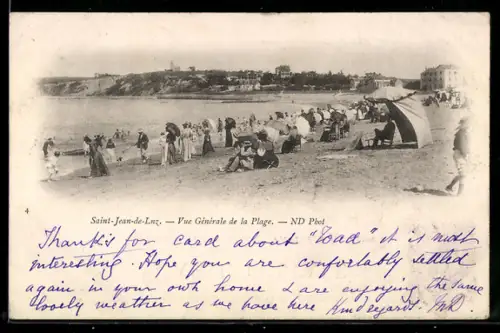 4
Saint-Jean-de-Luz. — Vue Générale de la Plage. — ND Phot
Thanks for card about "Toad" it is most
interesting. Hope you are comfortably settled
again in your own home & are enjoying the same
lovely weather as we have here Kind regards.